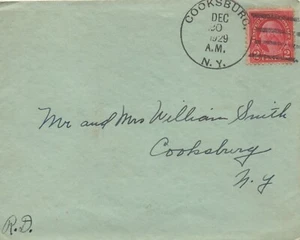 COOKSBURG,
DEC
20
1929
A.M.
N.Y.
2 2
Mr and Mrs William Smith
Cooksburg
N.Y
R.D.